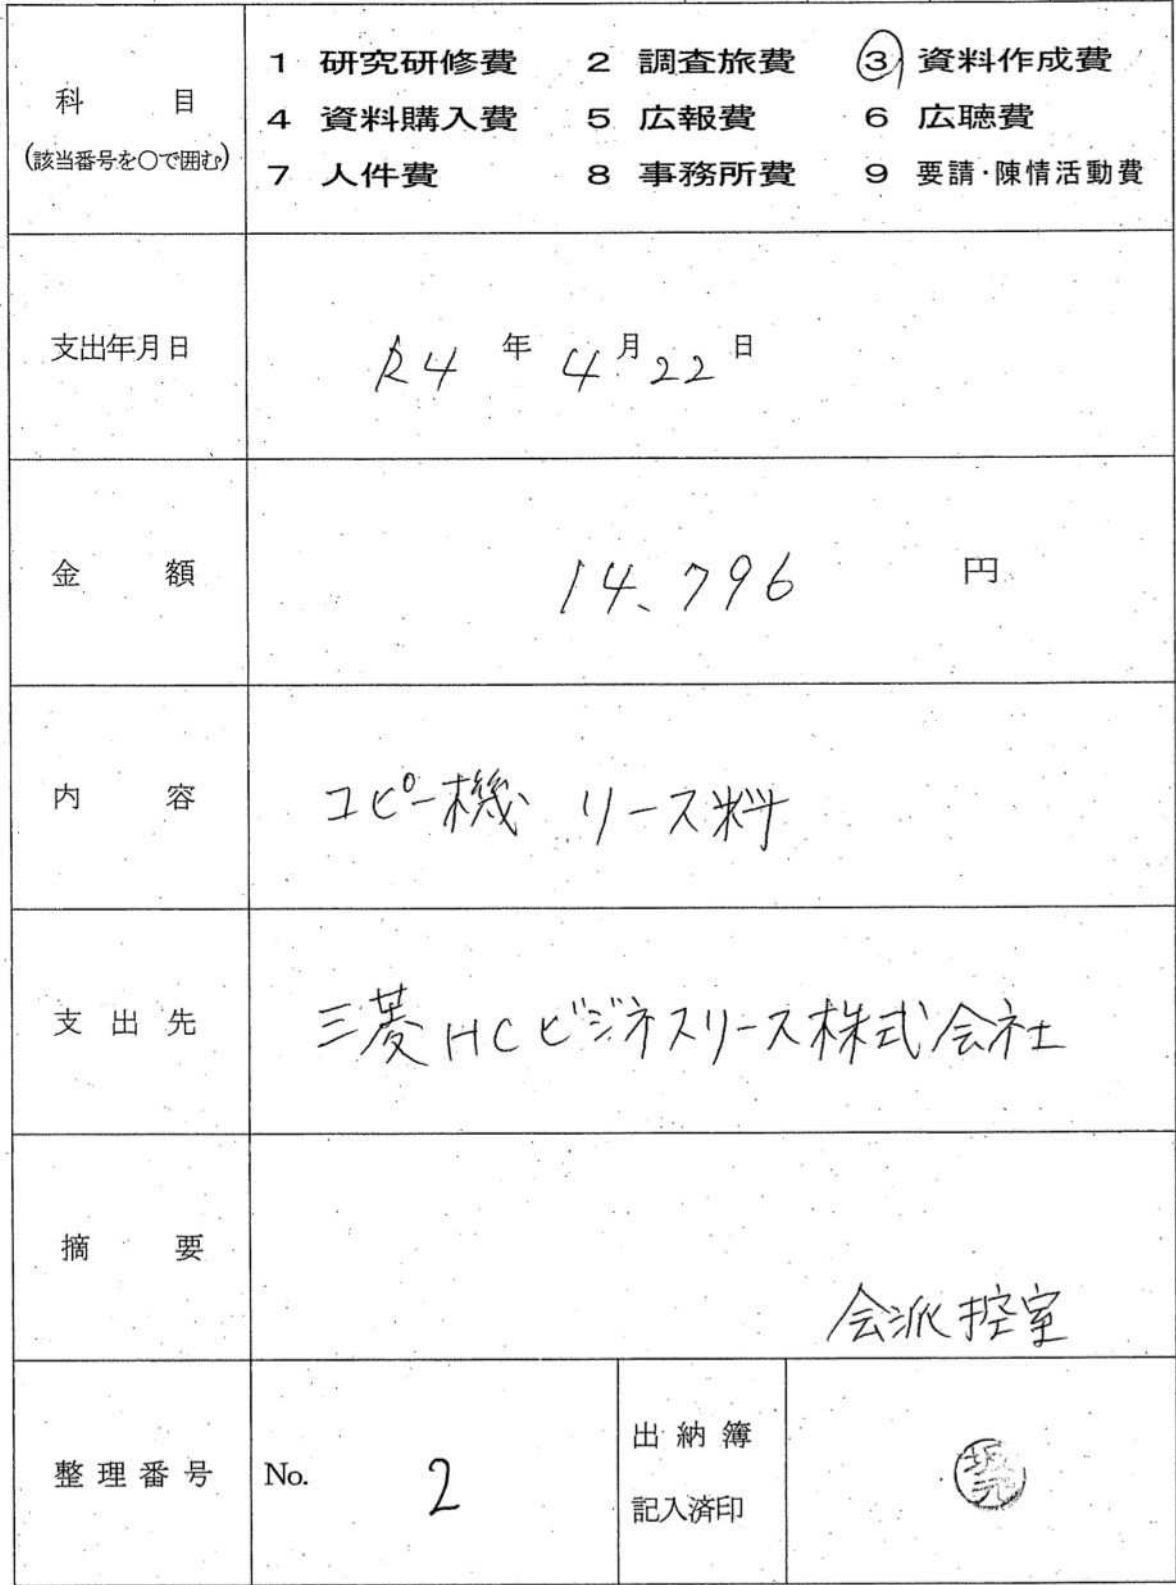 科 目
(該当番号を〇で囲む)
1 研究研修費 2 調査旅費 3 資料作成費
4 資料購入費 5 広報費 6 広聴費
7 人件費 8 事務所費 9 要請・陳情活動費
支出年月日
R4 年 4 月 22 日
金 額
14、796 円
内 容
コピー機 リース料
支 出 先
三菱HCビジネスリース株式会社
摘 要
会派控室
整 理 番 号
No. 2
出 納 簿
記入済印
坂元